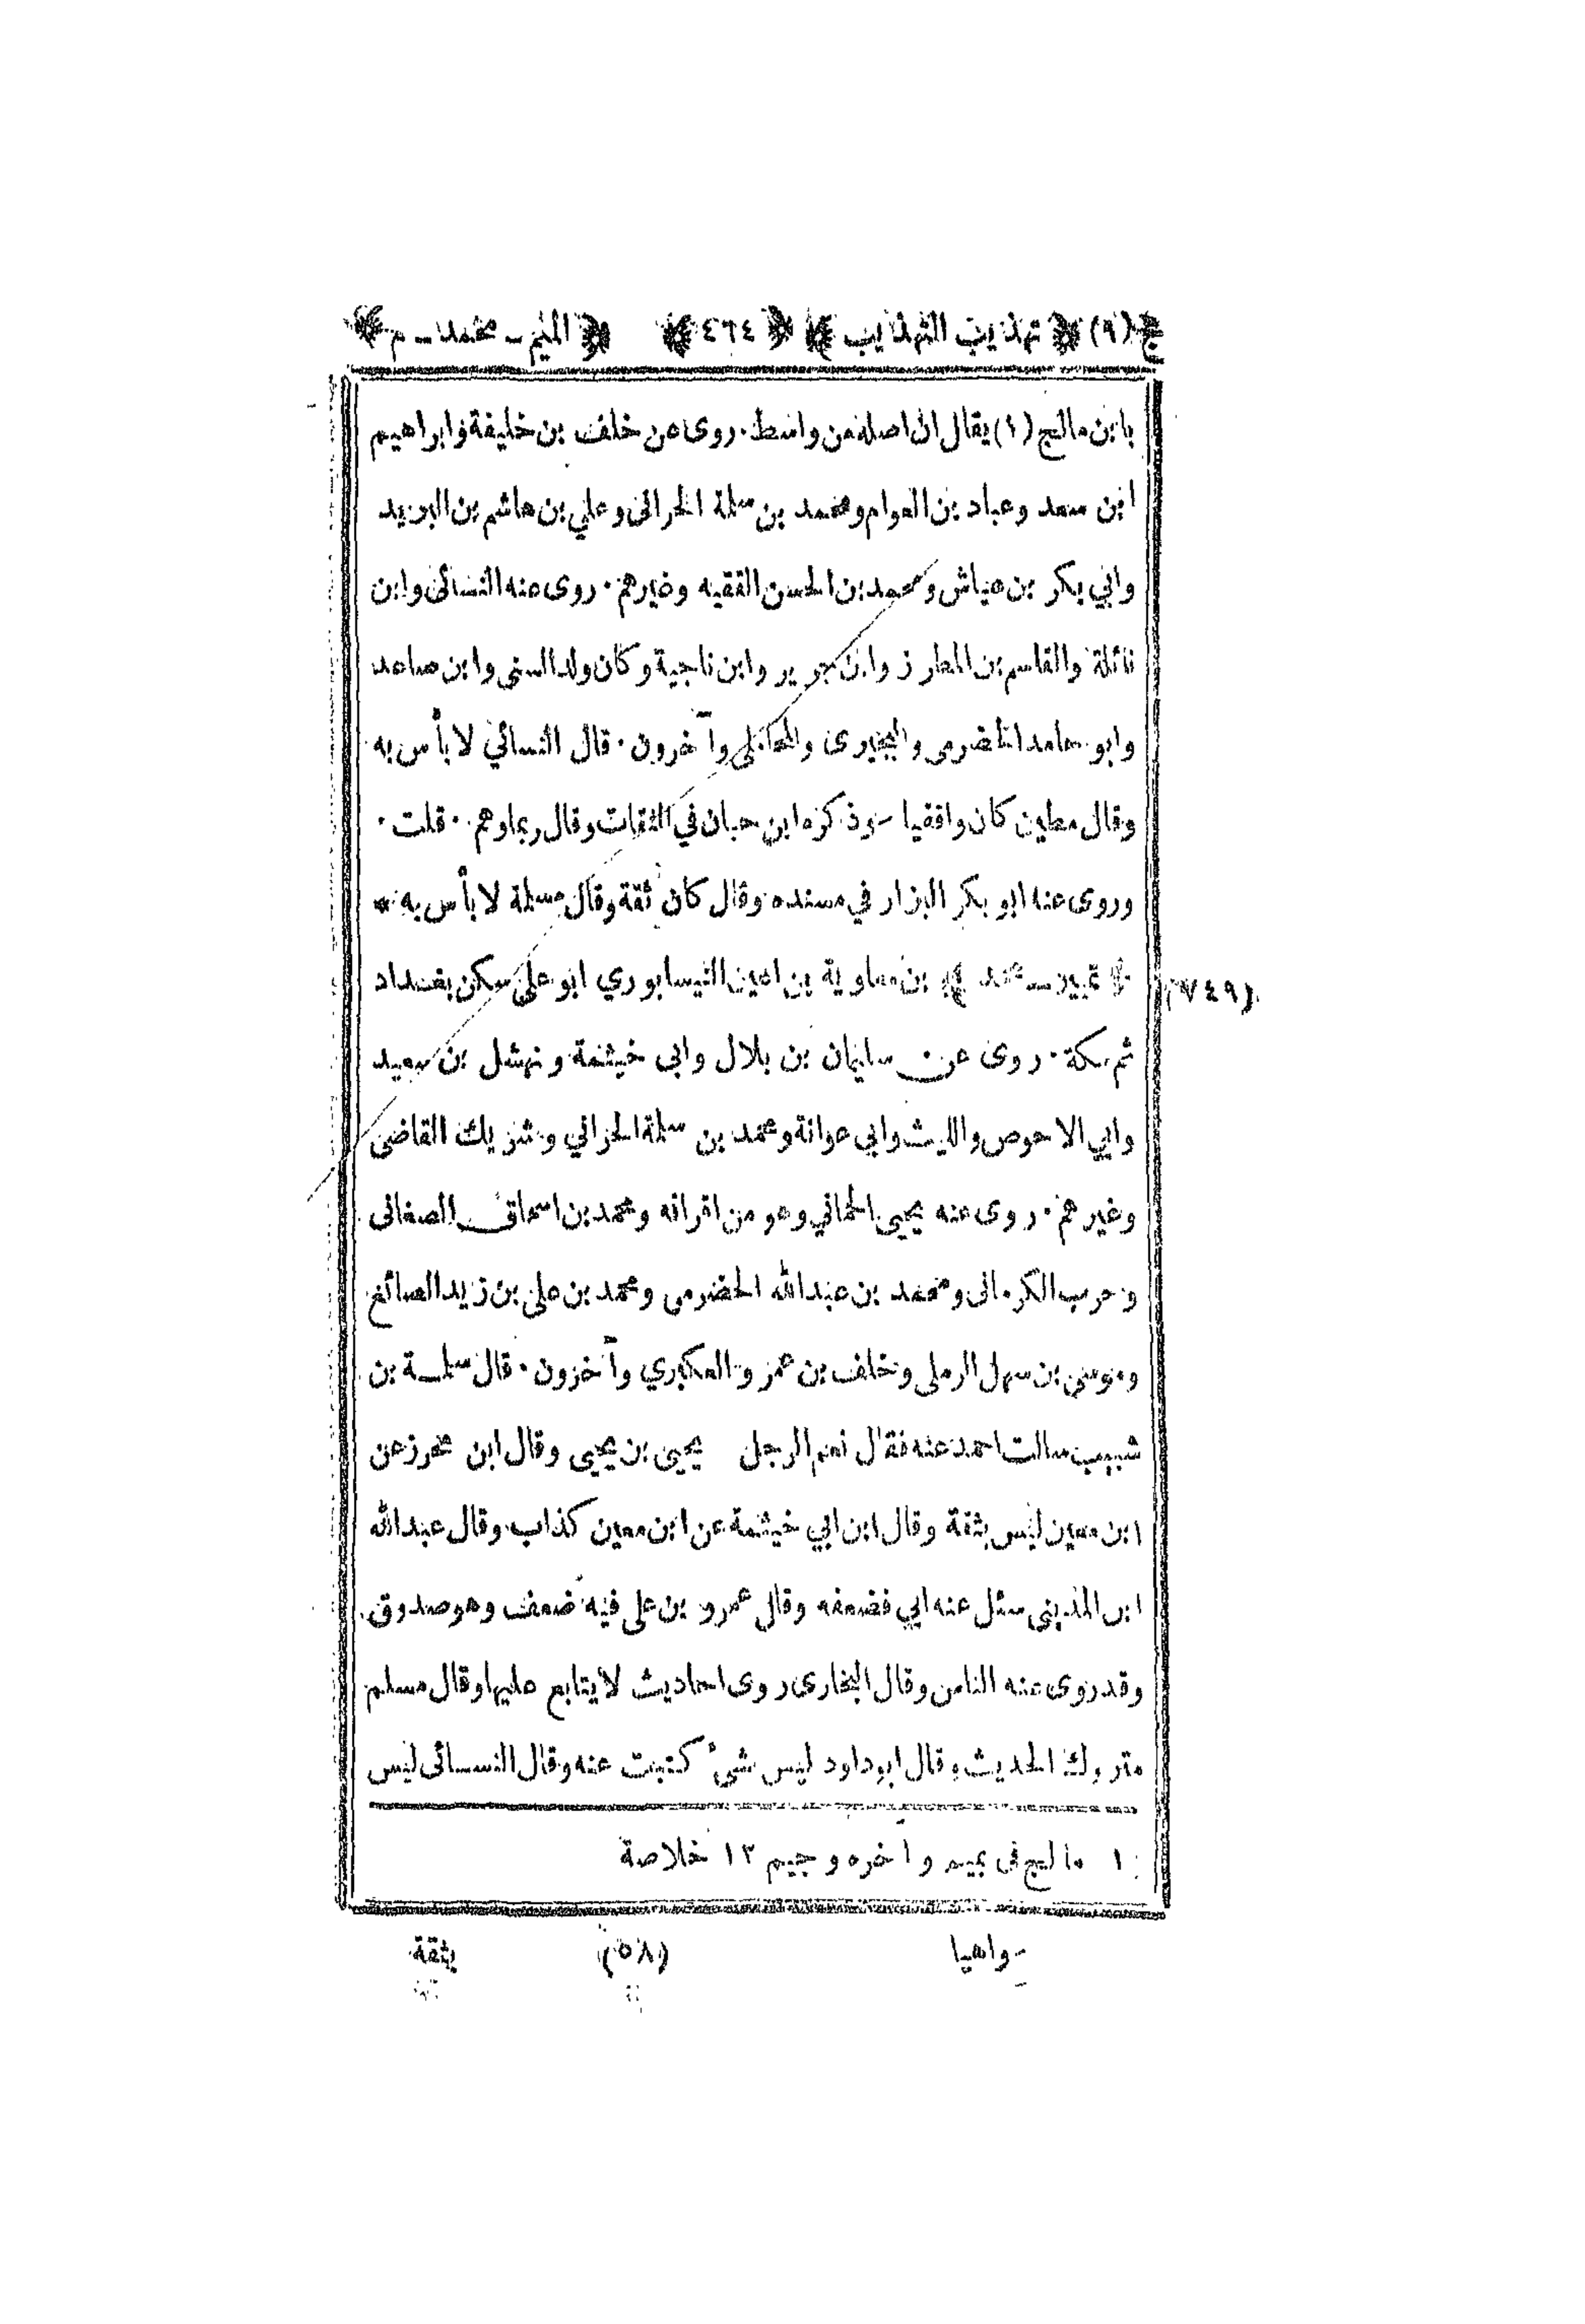 ج (٩) تهذيب التهذيب ٤٦٤ الميم - محمد - م
بابن مالج (١) يقال ان اصله من واسط. روى عن خلف بن خليفة وابراهيم
ابن سعد وعباد بن العوام ومحمد بن سلمة الحرانى وعلي بن هاشم بن البريد
وابي بكر بن عياش ومحمد بن الحسن الفقيه وغيرهم. روى عنه النسائى وابن
نائلة والقاسم بن المطرز وابن جرير وابن ناجية وكان ولد السنى وابن صاعد
وابو حامد الحضرمى والبجيرى والمحاملى وآخرون. قال النسائي لا بأس به
وقال مطين كان واقفيا وذكره ابن حبان في الثقات وقال ربما وهم. قلت.
وروى عنه ابو بكر البزار في مسنده وقال كان ثقة وقال مسلمة لا بأس به *
(٧٤٩) تمييز - محمد بن معاوية بن اعين النيسابوري ابو على سكن بغداد
ثم مكة. روى عن سليمان بن بلال وابى خيثمة ونهشل بن سعيد
وابي الاحوص والليث وابى عوانة ومحمد بن سلمة الحراني وشريك القاضى
وغيرهم. روى عنه يحيى الحماني وهو من اقرانه ومحمد بن اسحاق الصغانى
وحرب الكرمانى ومحمد بن عبدالله الحضرمى ومحمد بن على بن زيد الصائغ
وموسى بن سهل الرملى وخلف بن عمرو العكبري وآخرون. قال سلمة بن
شبيب سالت احمد عنه فقال نعم الرجل يحيى بن يحيى وقال ابن محرز عن
ابن معين ليس بثقة وقال ابن ابي خيثمة عن ابن معين كذاب وقال عبدالله
ابن المدينى سئل عنه ابي فضعفه وقال عمرو بن على فيه ضعف وهو صدوق
وقد روى عنه الناس وقال البخارى روى احاديث لا يتابع عليها وقال مسلم
متروك الحديث وقال ابوداود ليس شىء كتبت عنه وقال النسائى ليس
١ مالج فى بميم واخره وجيم ١٢ خلاصة
واهيا (٥٨) بثقة